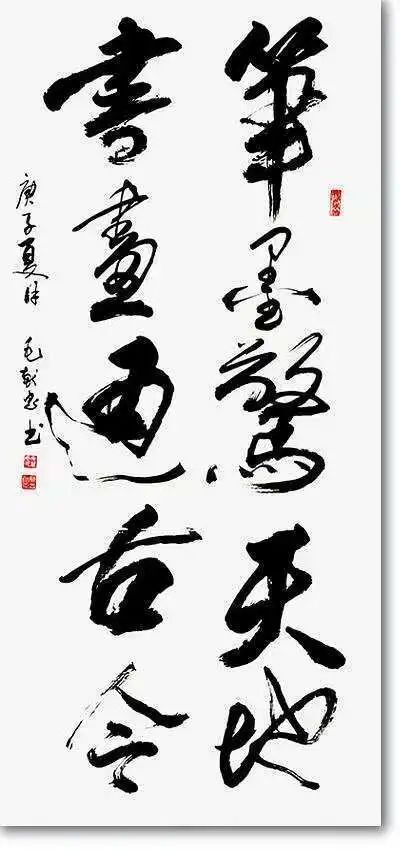 筆墨驚天地
書畫通古今
庚子夏月
毛
书